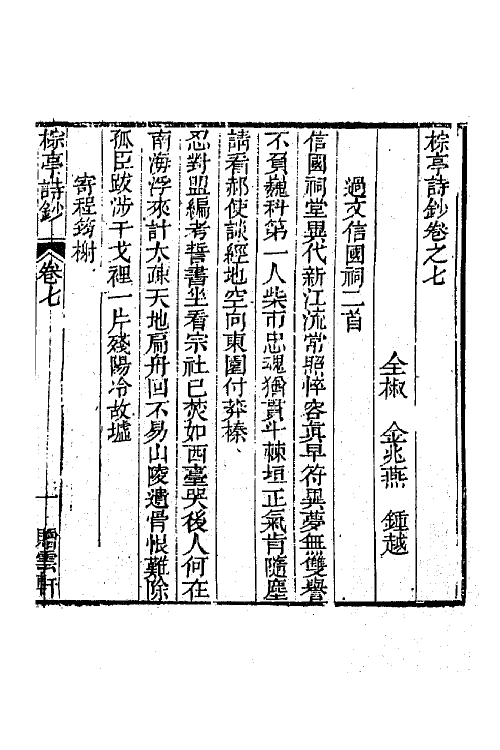 棕亭詩鈔卷之七
全椒　金兆燕　鍾越
過文信國祠二首
信國祠堂異代新江流常照悴容真早符異夢無雙譽
不負巍科第一人柴市忠魂猶貫斗棘垣正氣肯隨塵
請看郝使談經地空向東園付莽榛
忍對盟編考誓書坐看宗社已焚如西臺哭後人何在
南海浮來計太疎天地扁舟回不易山陵遺骨恨難除
孤臣跋涉干戈裡一片殘陽冷故墟
寄程筠榭
棕亭詩鈔　卷七　一　贈雲軒